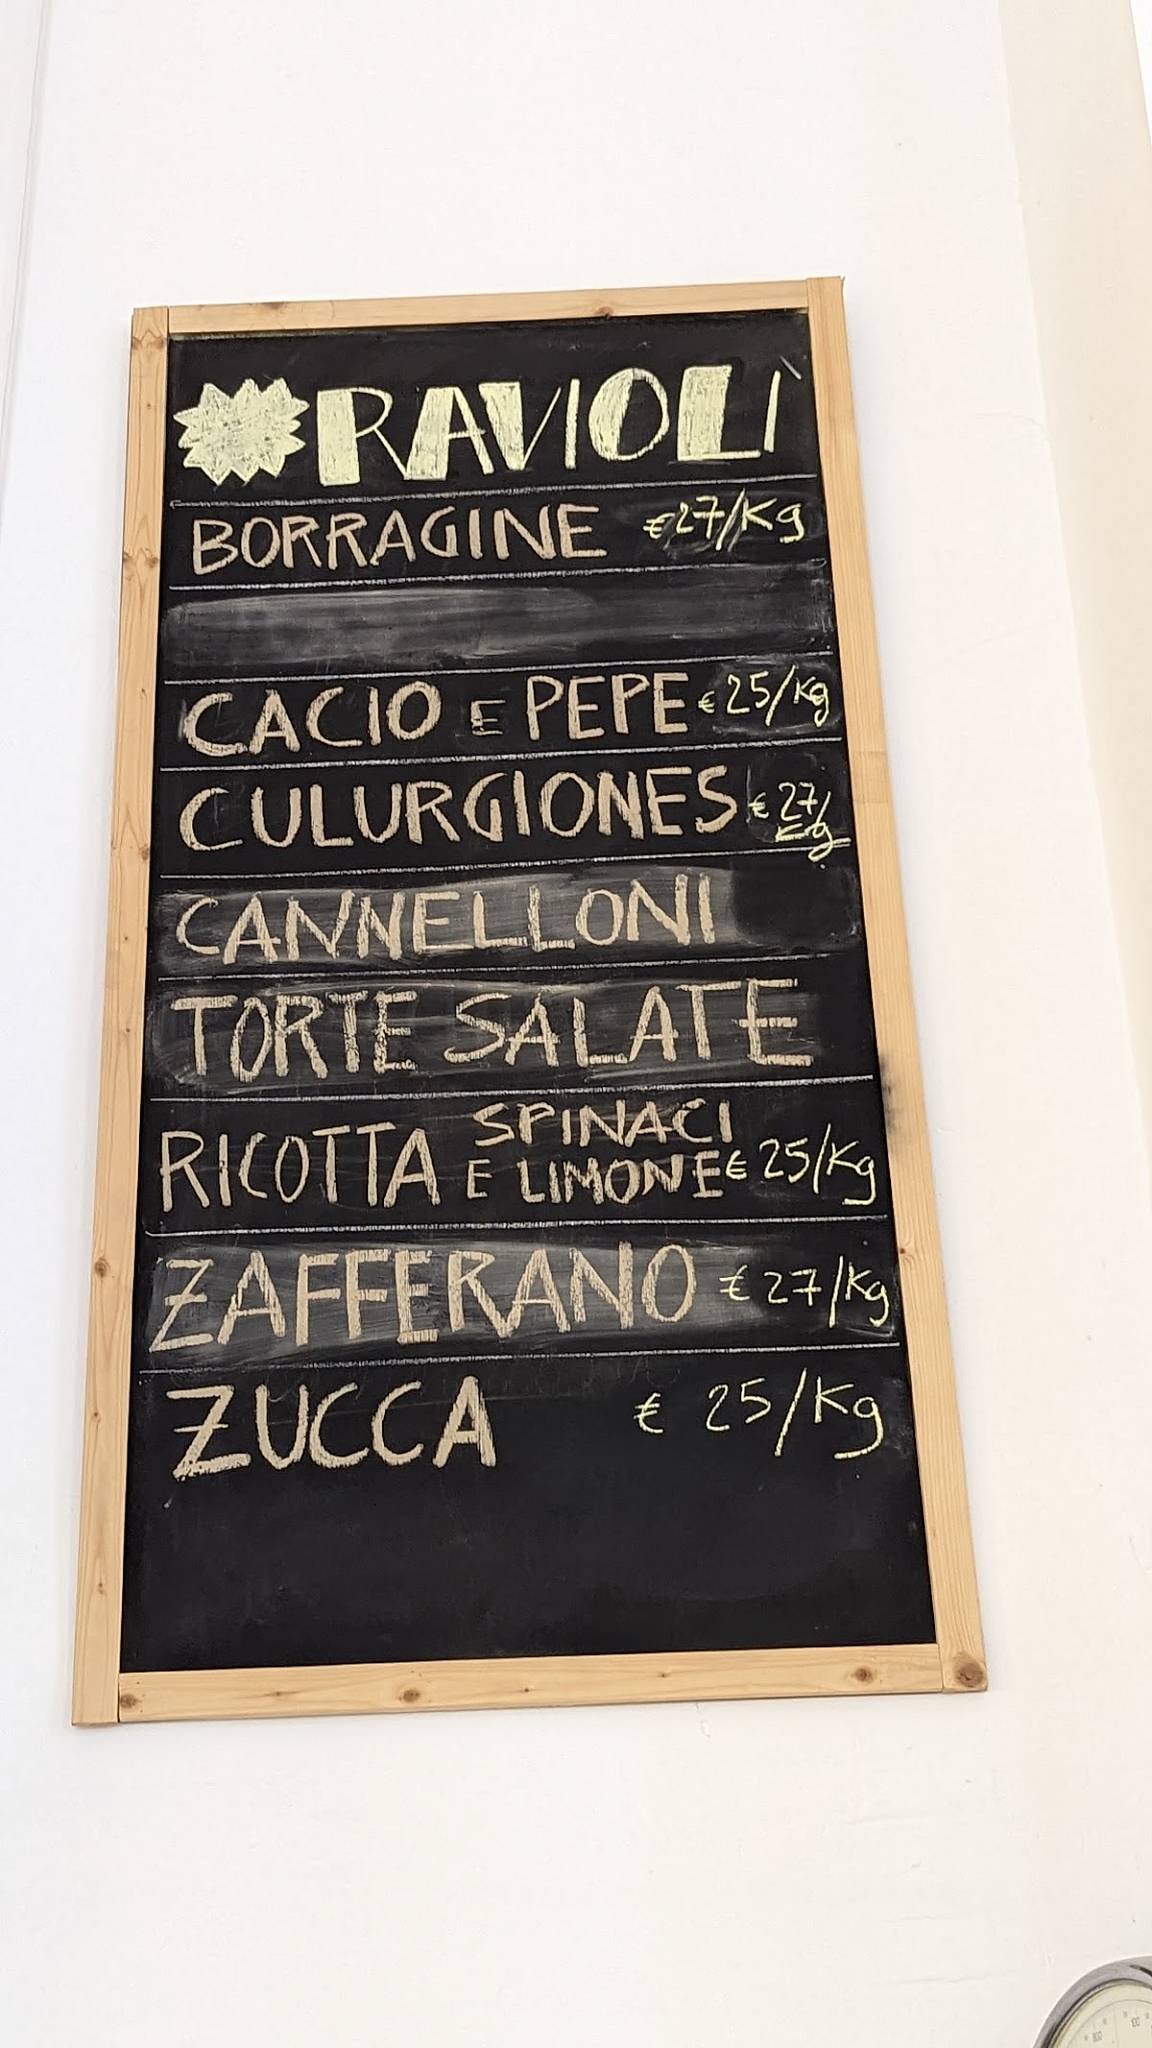 RAVIOLI
BORRAGINE €27/Kg
CACIO E PEPE €25/Kg
CULURGIONES €27/
Kg
CANNELLONI
TORTE SALATE
RICOTTA SPINACI
E LIMONE €25/Kg
ZAFFERANO €27/Kg
ZUCCA € 25/Kg